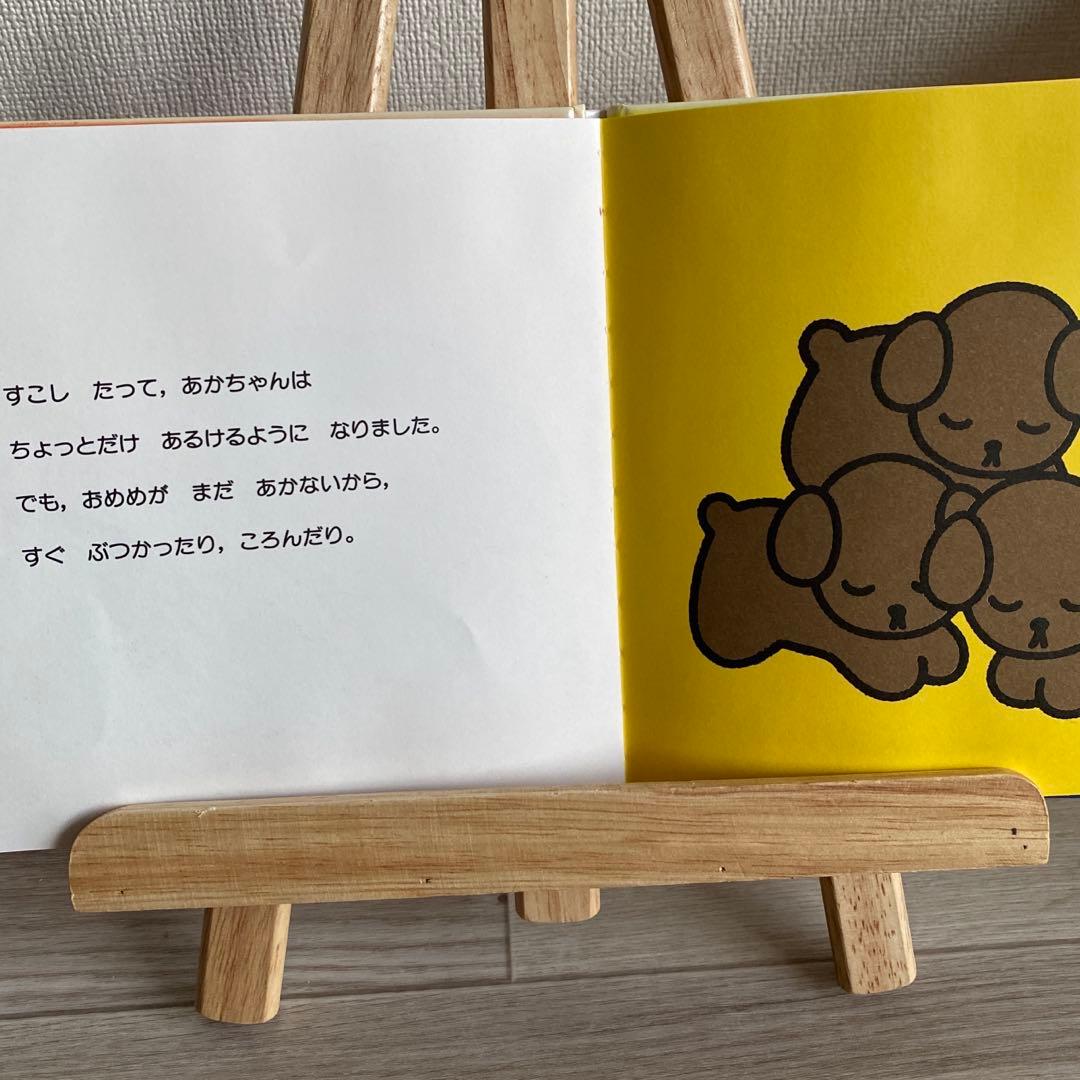 すこし　たって，あかちゃんは
ちょっとだけ　あるけるように　なりました。
でも，おめめが　まだ　あかないから，
すぐ　ぶつかったり，ころんだり。